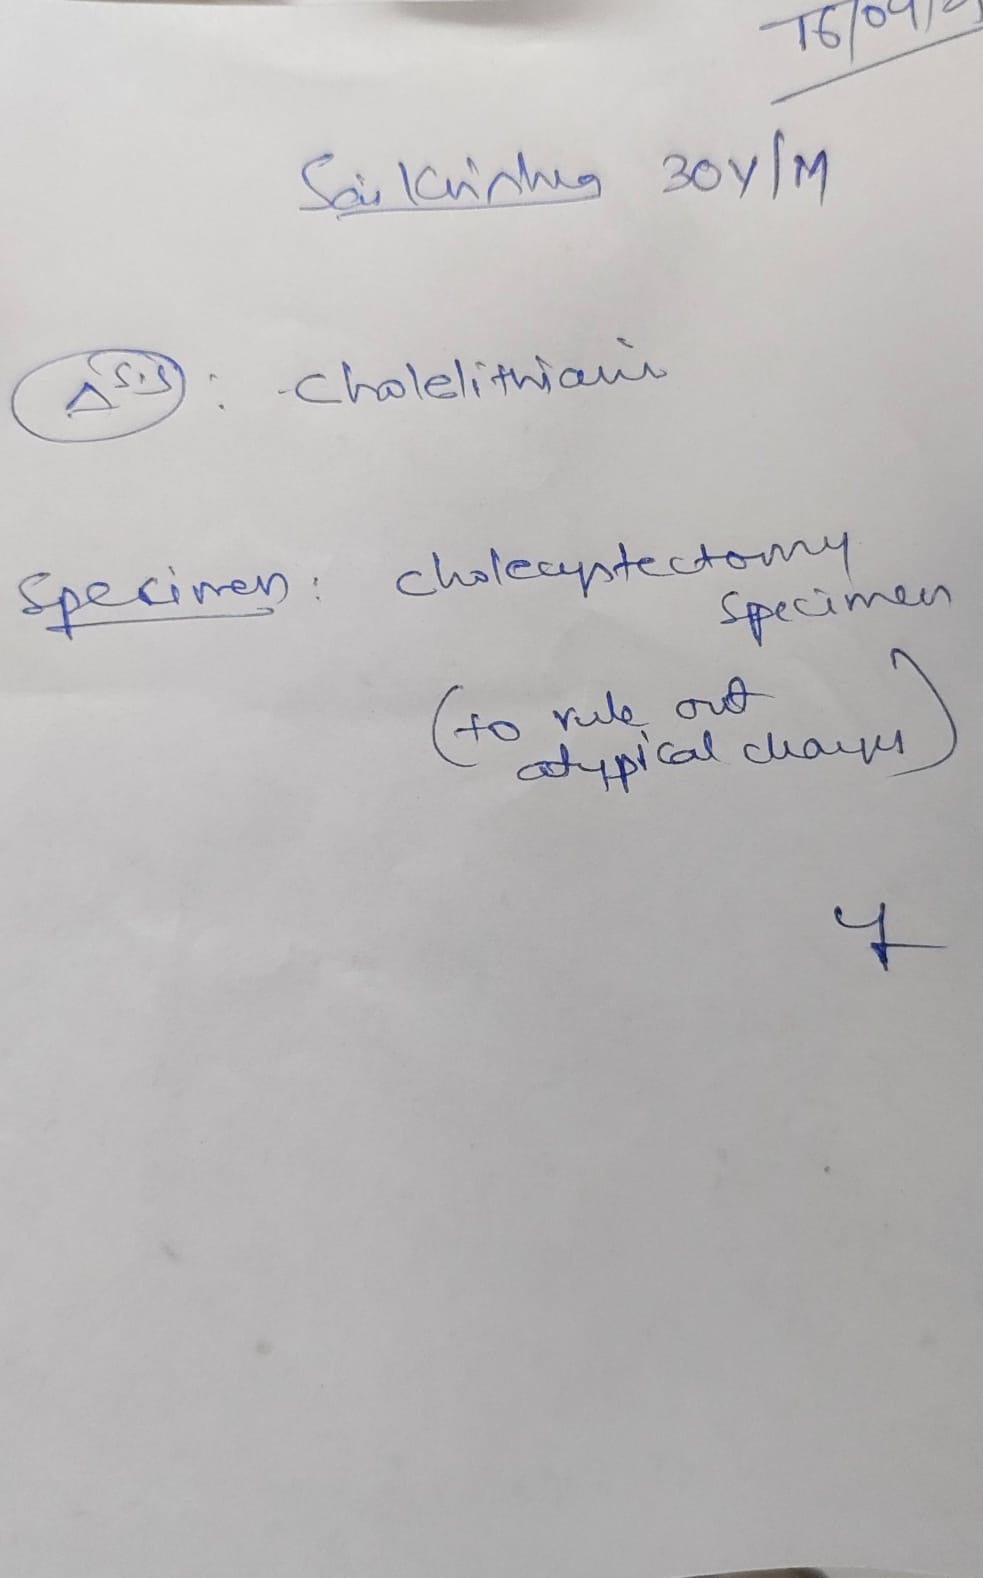 16/04/2
Sai Krishna 30Y/M
Δsis : - Cholelithiasis
Specimen : Cholecystectomy
Specimen
(to rule out
atypical changes)